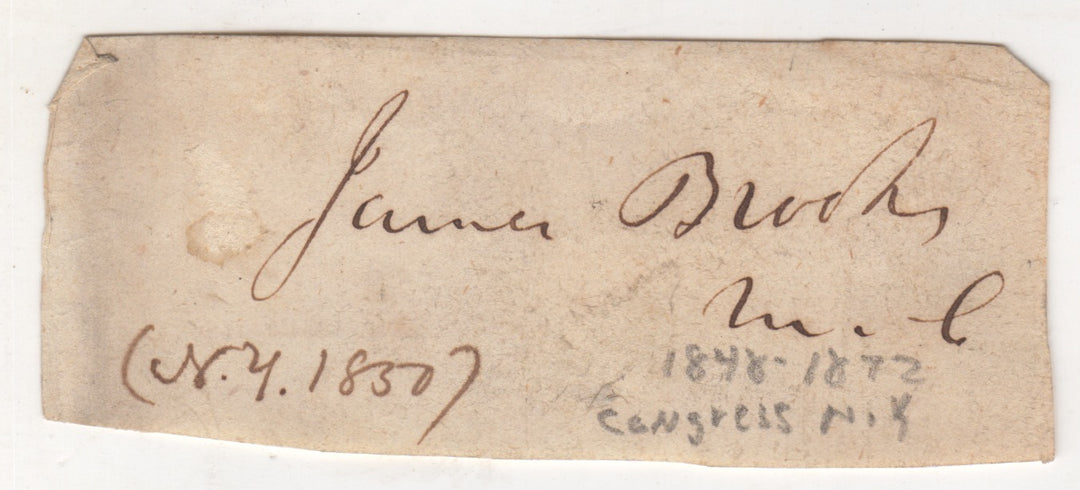 James Brooks
M. C
(N.Y. 1850)
1848-1872
Congress N.Y